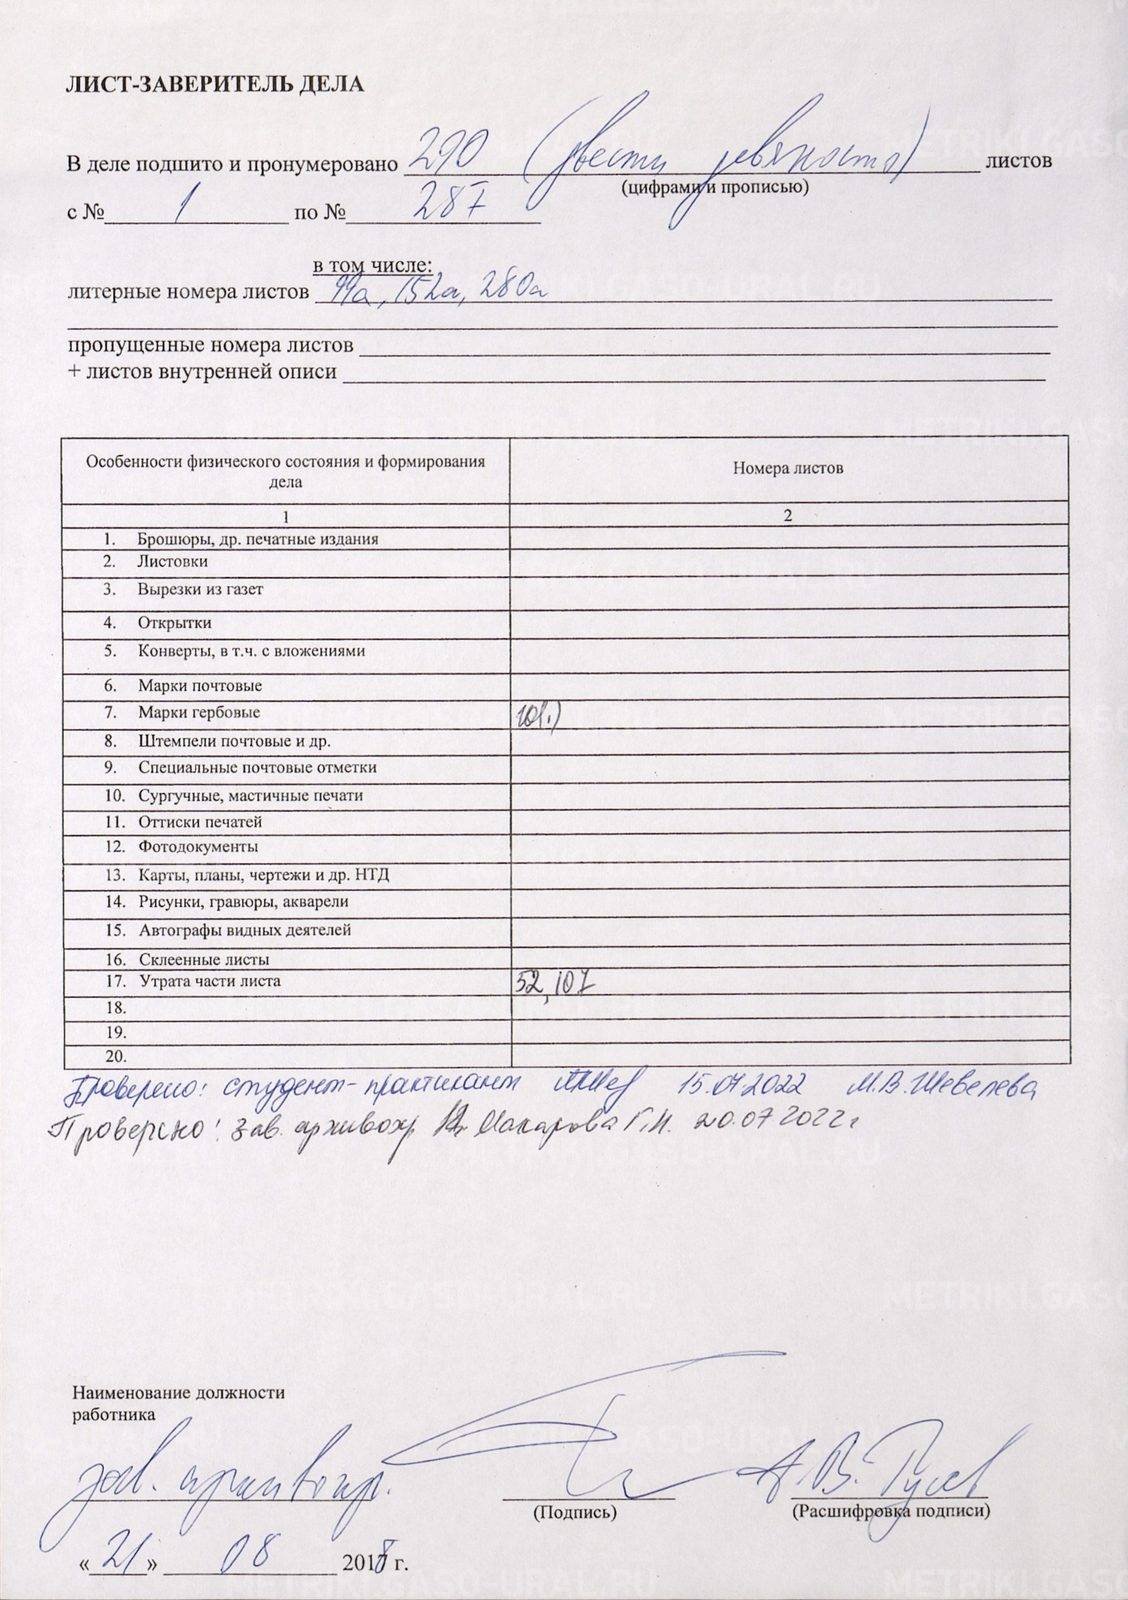 ЛИСТ-ЗАВЕРИТЕЛЬ ДЕЛА
В деле подшито и пронумеровано 290 (двести девяносто) листов
(цифрами и прописью)
с № 1 по № 287
в том числе:
литерные номера листов 99а, 152а, 280а
пропущенные номера листов
+ листов внутренней описи
Особенности физического состояния и формирования дела Номера листов
1 2
1. Брошюры, др. печатные издания
2. Листовки
3. Вырезки из газет
4. Открытки
5. Конверты, в т.ч. с вложениями
6. Марки почтовые
7. Марки гербовые
8. Штемпели почтовые и др.
9. Специальные почтовые отметки
10. Сургучные, мастичные печати
11. Оттиски печатей
12. Фотодокументы
13. Карты, планы, чертежи и др. НТД
14. Рисунки, гравюры, акварели
15. Автографы видных деятелей
16. Склеенные листы
17. Утрата части листа 52, 107
18.
19.
20.
Проверено: студент-практикант 15.07.2022 М.В.Шевелева
Проверено: зав. архивохр. Макарова Г.Н. 20.07.2022г
Наименование должности
работника
зав. архивохр. А.В. Гусев
(Подпись) (Расшифровка подписи)
«21» 08 2018 г.
METRIKI.GASO-URAL.RU